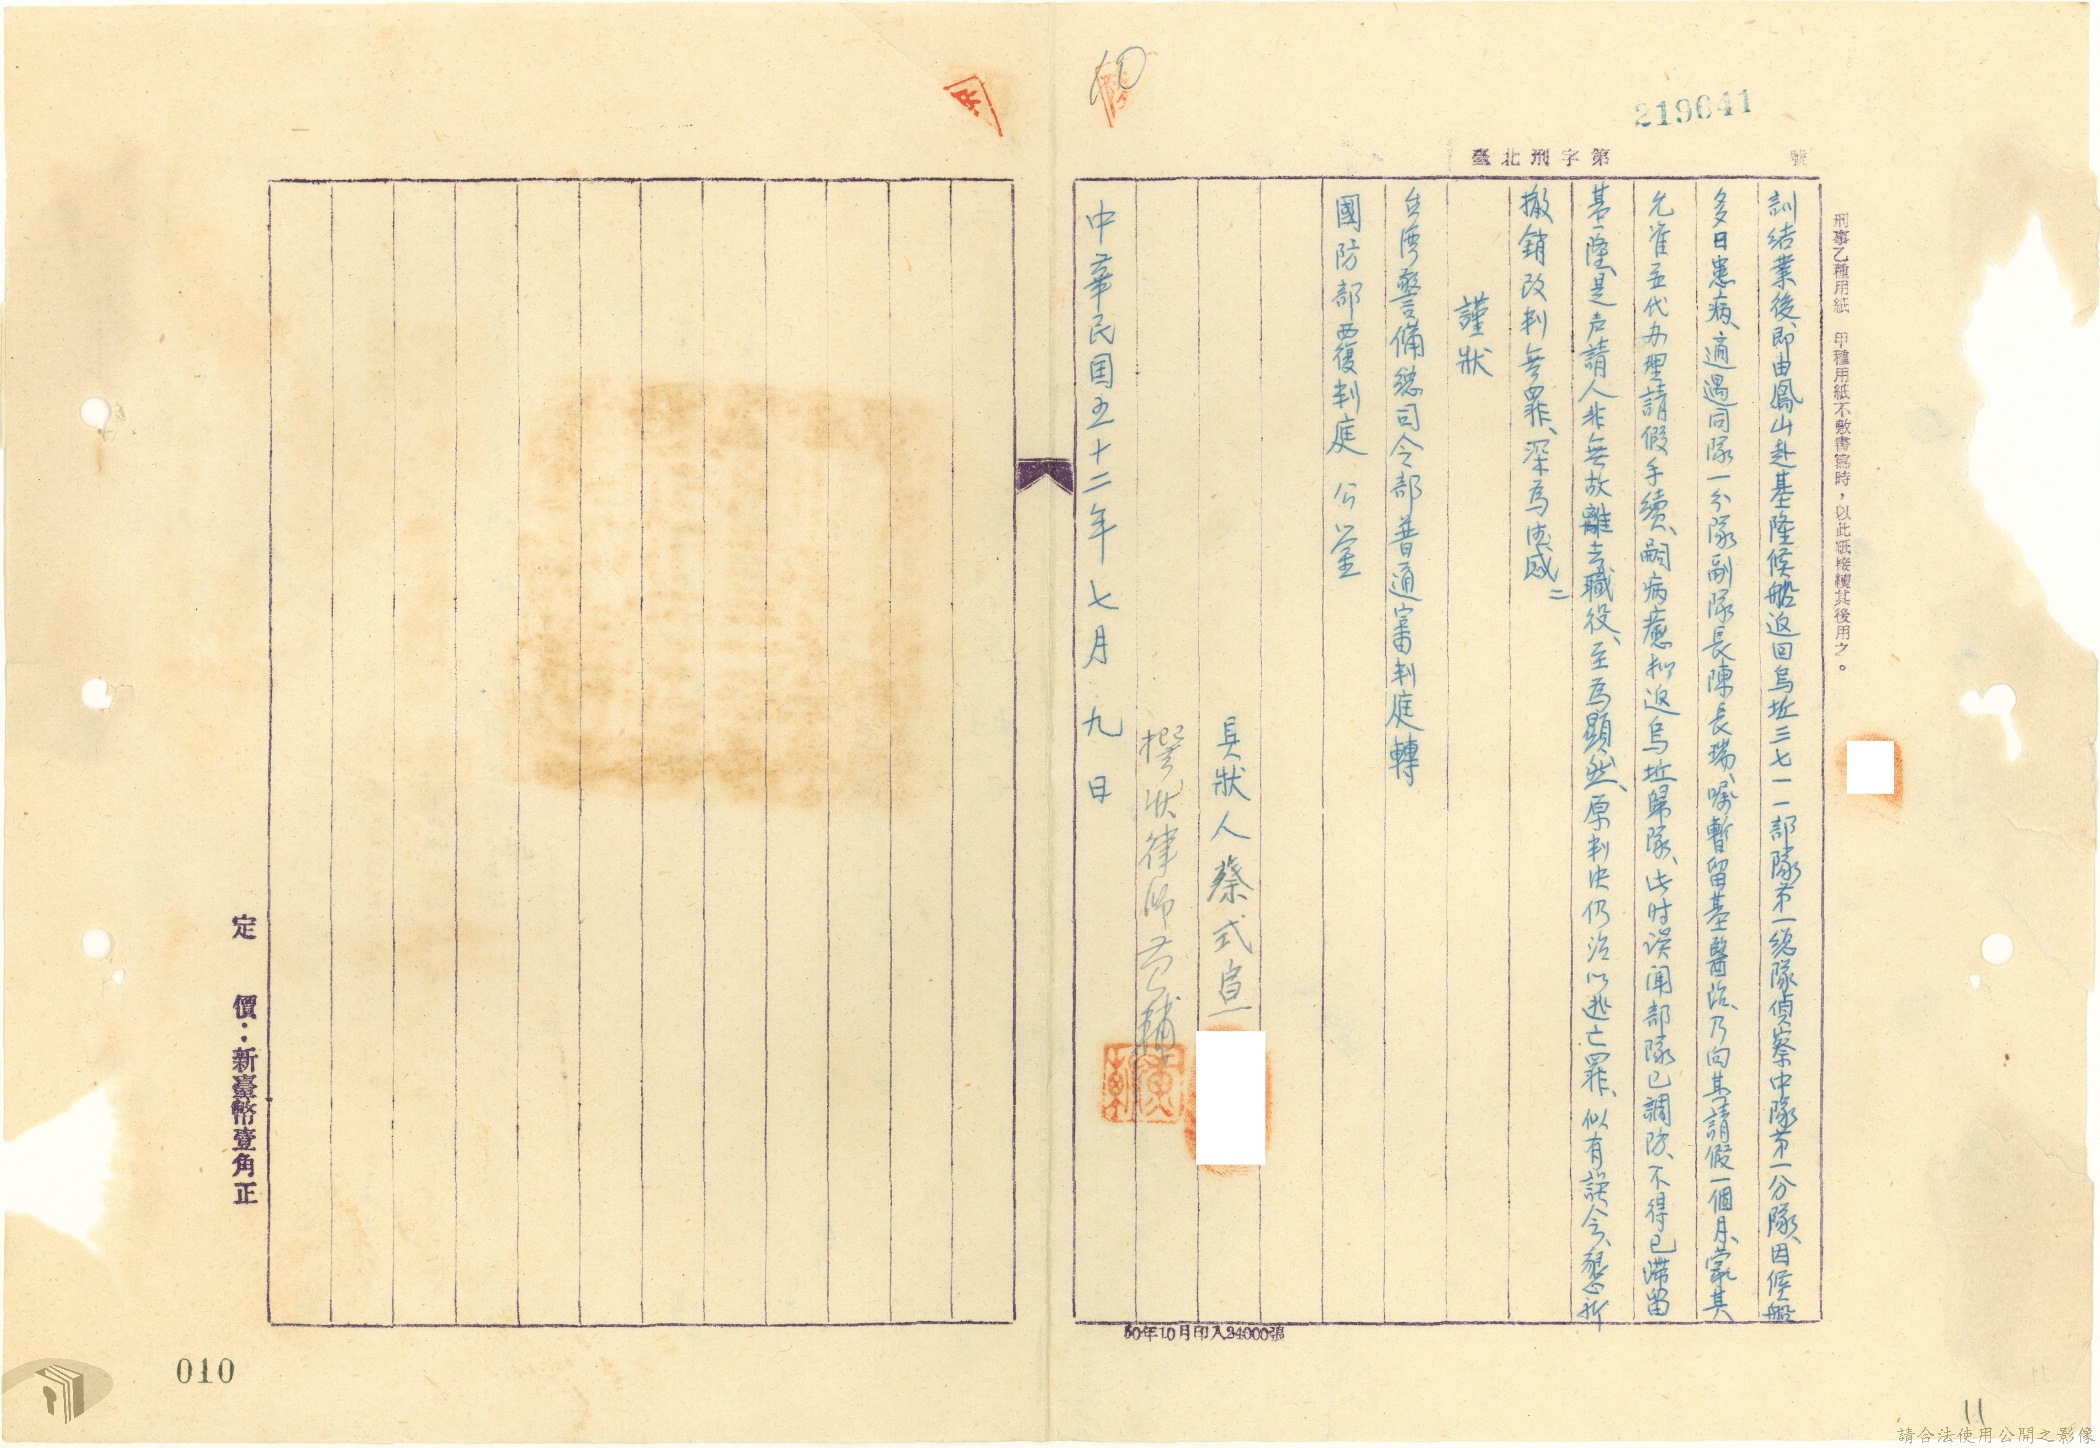 219641
臺北刑字第 號
刑事乙種用紙 甲種用紙不敷書寫時，以此紙接續其後用之。
訓結業後、即由鳳山赴基隆候船返回烏坵三七一一部隊第一總隊偵察中隊第一分隊、因候船
多日患病、適遇同隊一分隊副隊長陳長瑞、囑暫留基醫治、乃向其請假一個月、蒙其
允准並代办理請假手續、嗣病癒拟返烏坵歸隊、此时误闻部隊已調防、不得已滯留
基隆、是声請人非無故離去職役、至為顯然、原判决仍治以逃亡罪、似有誤会、懇祈
撤銷改判無罪、深為德感
謹狀
台湾警備總司令部普通審判庭轉
國防部覆判庭 公鑒
具狀人蔡式烜
撰狀律師黃輔
中華民国五十二年七月九日
50年10月印入24000張
定 價：新臺幣壹角正
010
11
請合法使用公開之影像